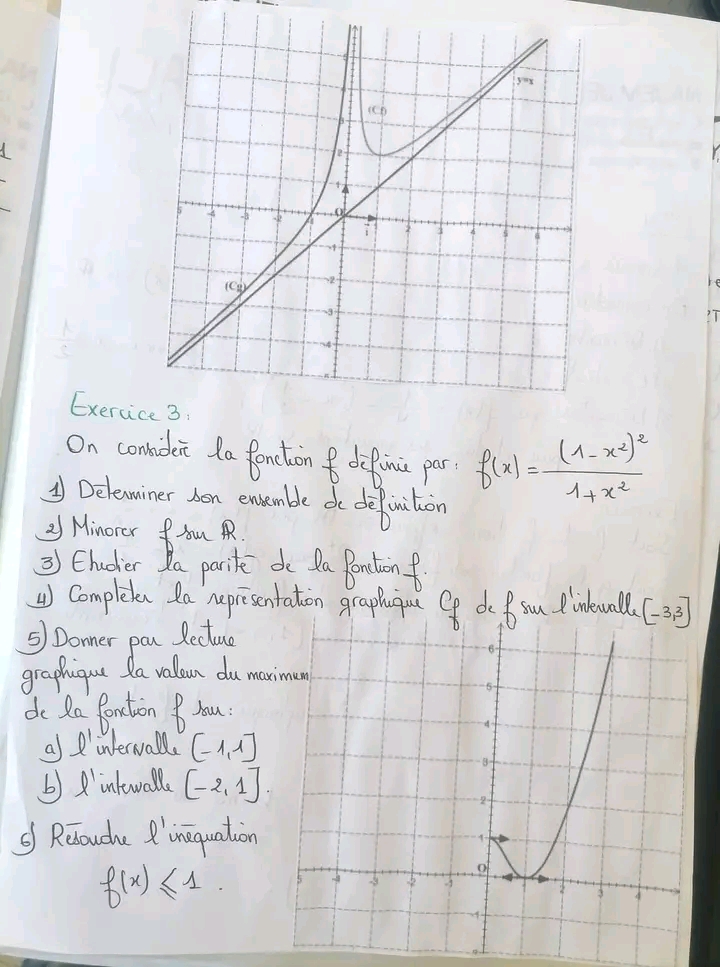 (Cf)
y=x
(Cg)
Exercice 3:
On considère la fonction f définie par: f(x) = (1-x²)² / 1+x²
1) Déterminer son ensemble de définition
2) Minorer f sur ℝ.
3) Etudier la parité de la fonction f.
4) Compléter la représentation graphique Cf de f sur l'intervalle [-3,3]
5) Donner par lecture
graphique la valeur du maximum
de la fonction f sur:
a) l'intervalle [-1,1]
b) l'intervalle [-2,1].
6) Résoudre l'inéquation
f(x) ⩽ 1.